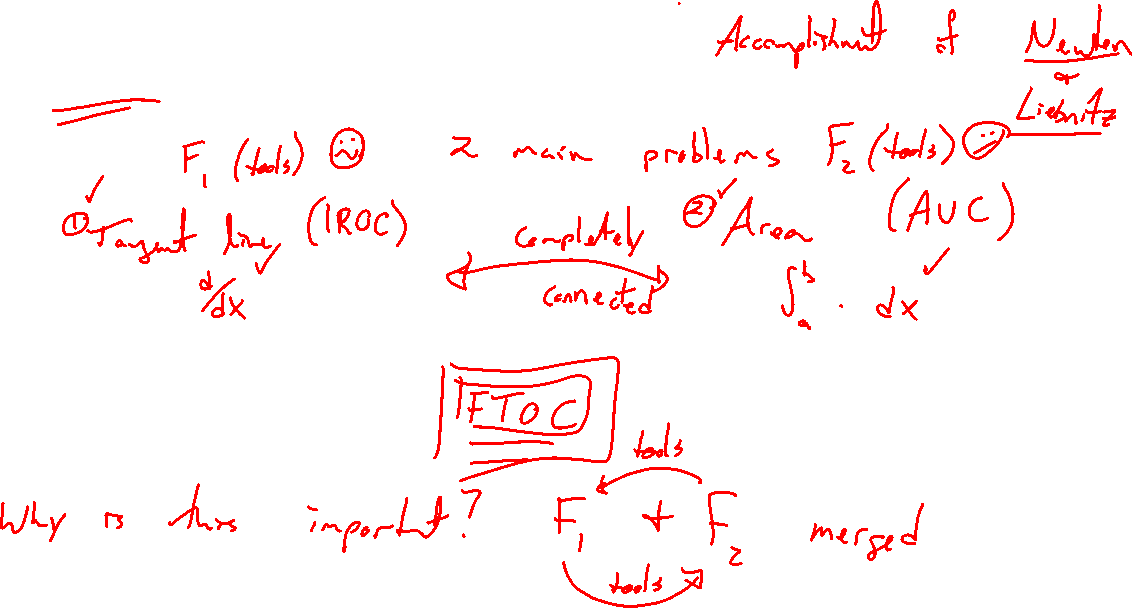 Accomplishment of Newton
&
Liebnitz
F₁ (tools) 2 main problems F₂ (tools)
① Tangent line (IROC) ② Area (AUC)
completely
connected
d/dx ∫ₐᵇ · dx
FTOC
tools
Why is this important? F₁ + F₂ merged
tools